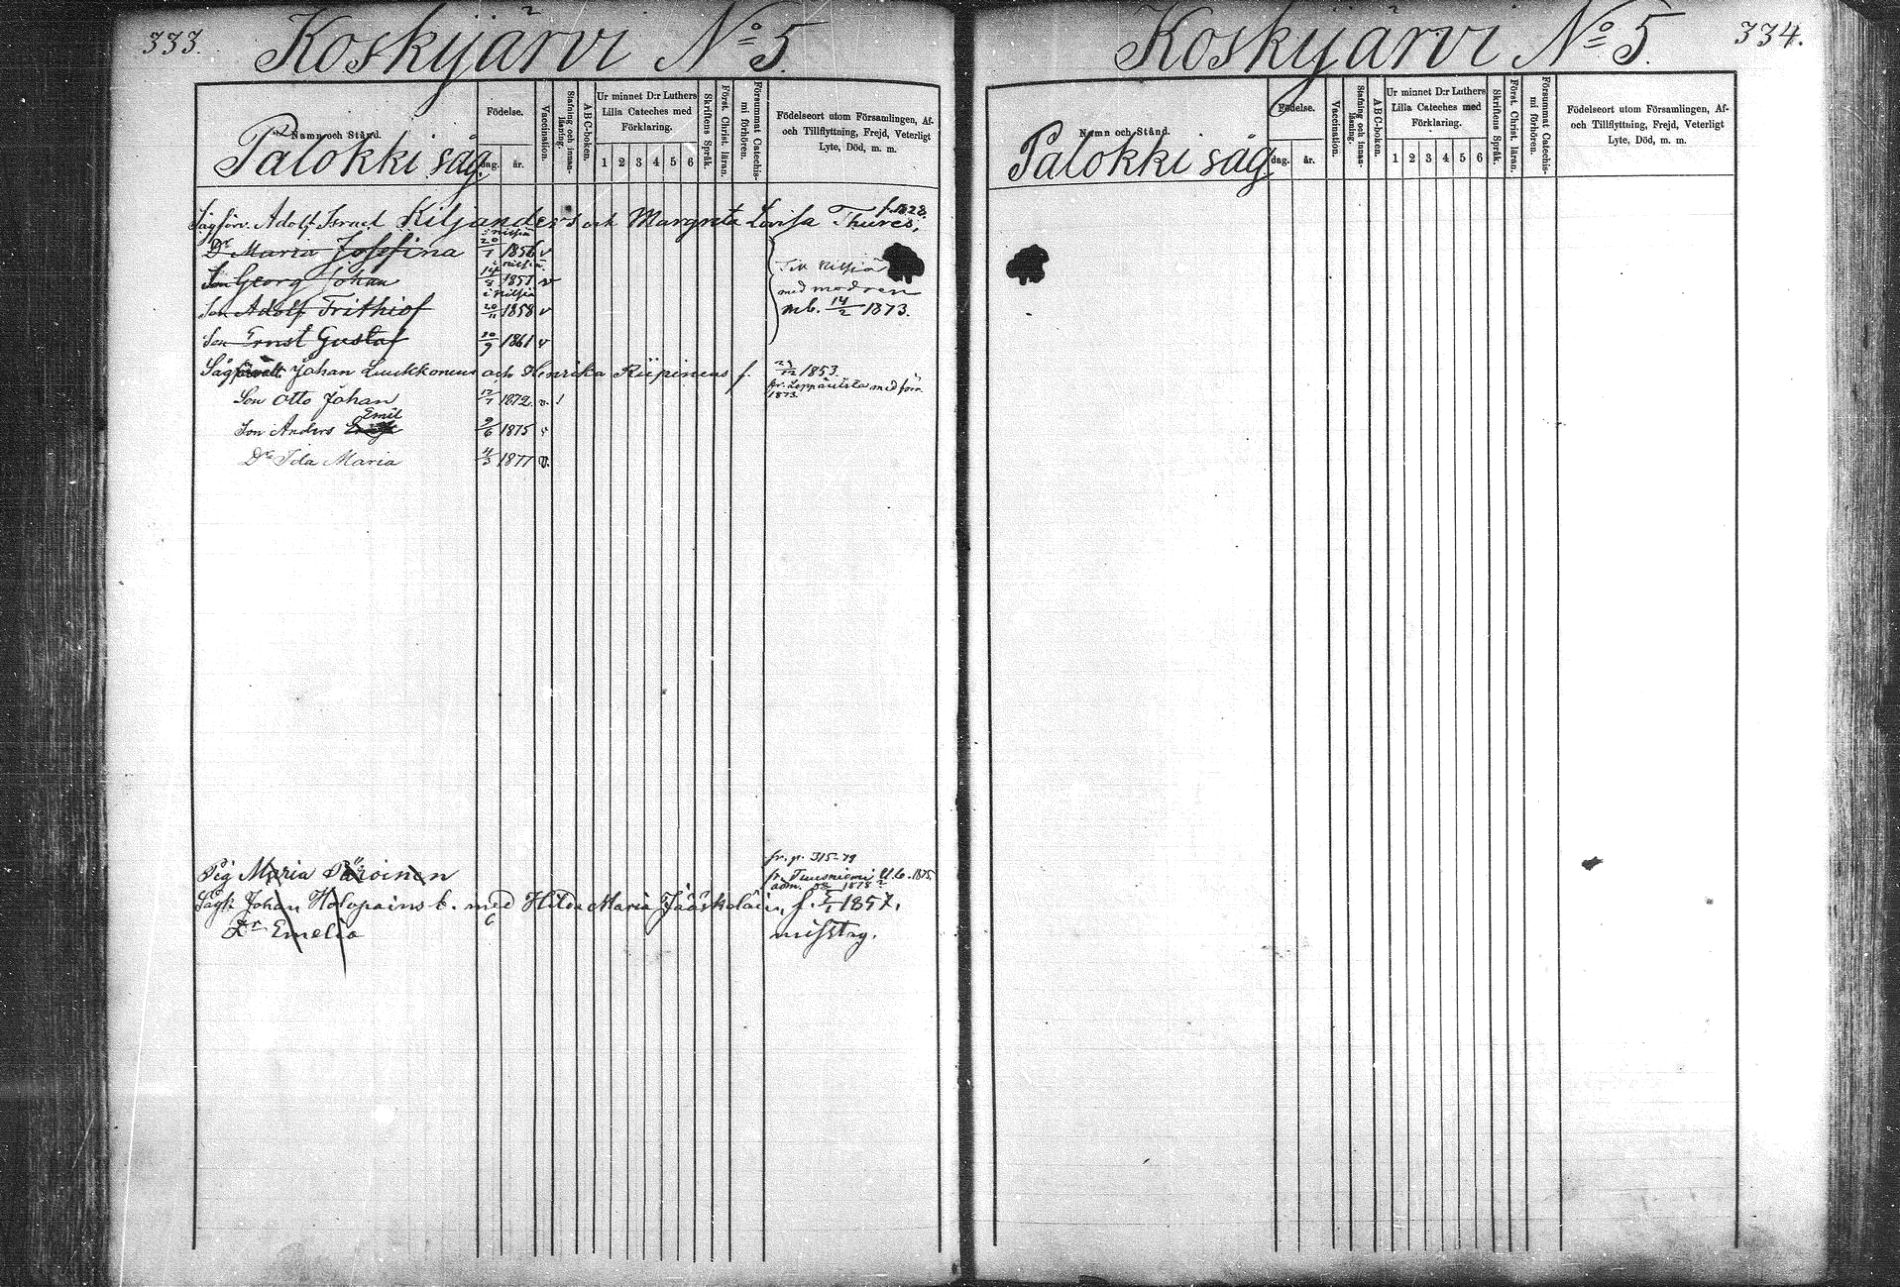 333.
Koskijärvi No 5.
Namn och Stånd.
Palokki såg.
Födelse.
dag.
år.
Vaccination.
Stafning och innan-läsning.
ABC-boken.
Ur minnet D:r Luthers
Lilla Cateches med
Förklaring.
1 2 3 4 5 6
Skriftens Språk.
Först. Christ. läran.
Försummat Catechis-mi förhören.
Födelseort utom Församlingen, Af-
och Tillflyttning, Frejd, Veterligt
Lyte, Död, m. m.
Sågförv. Adolf Israel Kiljanders och Margreta Lovisa Thures, f. 1828.
i Nilsiä
Dr Maria Josefina 20/1 1856 v
i Nilsiä
Son Georg Johan 14/8 1857 v Till Nilsiä
i Nilsiä med modren
Son Adolf Frithiof 20/11 1858 v mb. 14/2 1873.
Son Ernst Gustaf 20/9 1861 v
Johan Luukkonens och Henrika Riipinens f. 1853.
fr. Leppävirta med förn.
1873.
Son Otto Johan 1872. v.
Emil
Son Anders 9/6 1875 v
Dr Ida Maria 4/3 1877 v.
fr. p. 315-79
Pig Maria fr. Tuusniemi U.b. 1875.
adm. 1878
Johan Holopains b. med Hilda Maria Jääskeläin, f. 1857.
Dr Emelia 6 misstag.
334.
Koskijärvi No 5.
Namn och Stånd.
Palokki såg.
Födelse.
dag.
år.
Vaccination.
Stafning och innan-läsning.
ABC-boken.
Ur minnet D:r Luthers
Lilla Cateches med
Förklaring.
1 2 3 4 5 6
Skriftens Språk.
Först. Christ. läran.
Försummat Catechis-mi förhören.
Födelseort utom Församlingen, Af-
och Tillflyttning, Frejd, Veterligt
Lyte, Död, m. m.